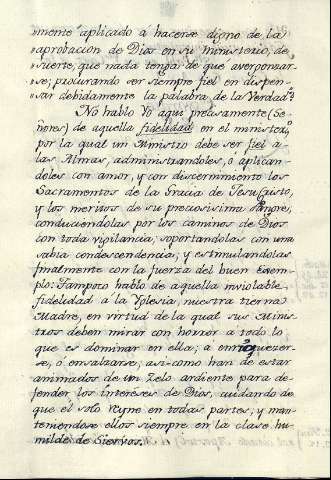 mente aplicado a hacerse digno de la
aprobacion de Dios en su ministerio, de
suerte, que nada tenga de que avergonzar-
se; procurando ser siempre fiel en dispen-
sar debidamente la palabra de la Verdad.
No hablo Yo aqui precisamente (Se-
ñores) de aquella fidelidad en el minist.º,
por la qual un Ministro debe ser fiel a
las Almas, administrandoles, ó aplican-
doles con amor, y con discernimiento los
Sacramentos de la Gracia de Jesu Cristo,
y los meritos de su preciosisima Sangre,
conduciendolas por los caminos de Dios
con toda vigilancia, soportandolas con una
sabia condescendencia; y estimulandolas
finalmente con la fuerza del buen Exem-
plo: Tampoco hablo de aquella inviolable
fidelidad a la Yglesia, nuestra tierna
Madre, en virtud de la qual sus Minis-
tros deben mirar con horror a todo lo
que es dominar en ella; a enriquezer-
se, ó ensalzarse, asi como han de estar
animados de un Zelo ardiente para de-
fender los intereses de Dios, cuidando de
que el solo Reyne en todas partes; y man-
teniendose ellos siempre en la clase hu-
milde de Siervos.